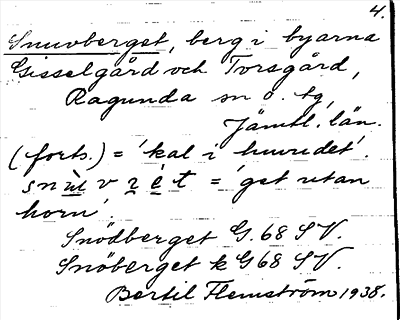 4.
Snuvberget, berg i byarna
Gisselgård och Torsgård,
Ragunda sn o. tg,
Jämtl. län.
(forts.) = 'kal i huvudet'.
snùvzét = 'get utan
horn'.
Snödberget G. 68 SV.
Snöberget k G 68 SV.
Bertil Flemström 1938.